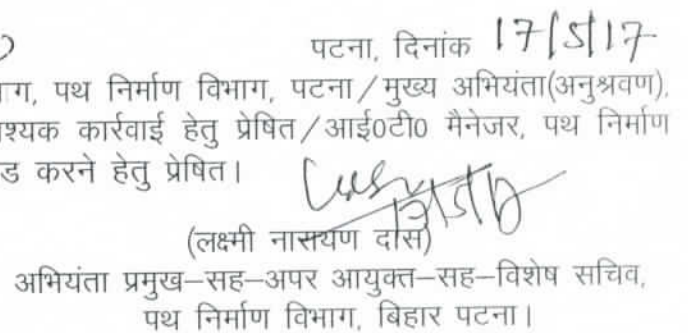 पटना, दिनांक 17/5/17
ग, पथ निर्माण विभाग, पटना/मुख्य अभियंता(अनुश्रवण),
श्यक कार्रवाई हेतु प्रेषित/आई०टी० मैनेजर, पथ निर्माण
ड करने हेतु प्रेषित।
17/5/17
(लक्ष्मी नारायण दास)
अभियंता प्रमुख–सह–अपर आयुक्त–सह–विशेष सचिव,
पथ निर्माण विभाग, बिहार पटना।